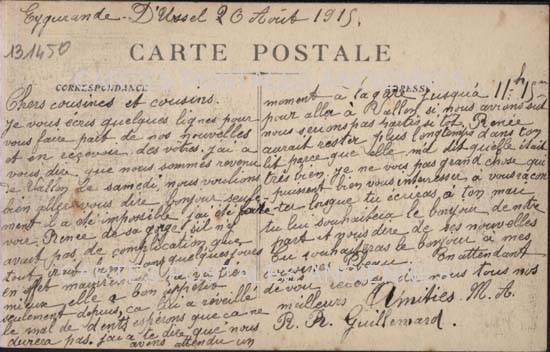 Eygurande-D'Ussel 20 Août 1915.
131450
CARTE POSTALE
CORRESPONDANCE
ADRESSE
Chers cousines et cousins.
Je vous écris quelques lignes pour
vous faire part de nos nouvelles
et en recevoir des votres. J'ai à
vous dire que nous sommes revenu
de Vallon de samedi, nous voulions
bien aller vous dire bonjour seule
ment il a été impossible j'ai été faire
voir Renée de sa gorge s'il n'y
avait pas de complication que
tout irait bien dans quelques jours
en effet aujourd'hui ça va très
mieux elle a bon appetit
seulement depuis, ça lui a réveillé
le mal de dents espérons que ca ne
durera pas. j'ai a te dire que nous
avons attendu un
moment à la gare jusqu'à 11h 15m
pour alla à Vallon si nous avions sut
nous serions pas partis si tôt Renée
aurait rester plus longtemps dans ton
lit parce que elle m'a dit quelle était
très bien, je ne vous pas grand chose qui
puissent bien vous interesser à vous racon
ter lorsque tu écriras à ton mari
tu lui souhaitera le bonjour de notre
part et nous dire de ses nouvelles
tu souhaiteras le bonjour à mes
cousins En attendant
de vous recevez nous tous nos
meilleurs Amitiés. M. A.
R. R. Guillemard.